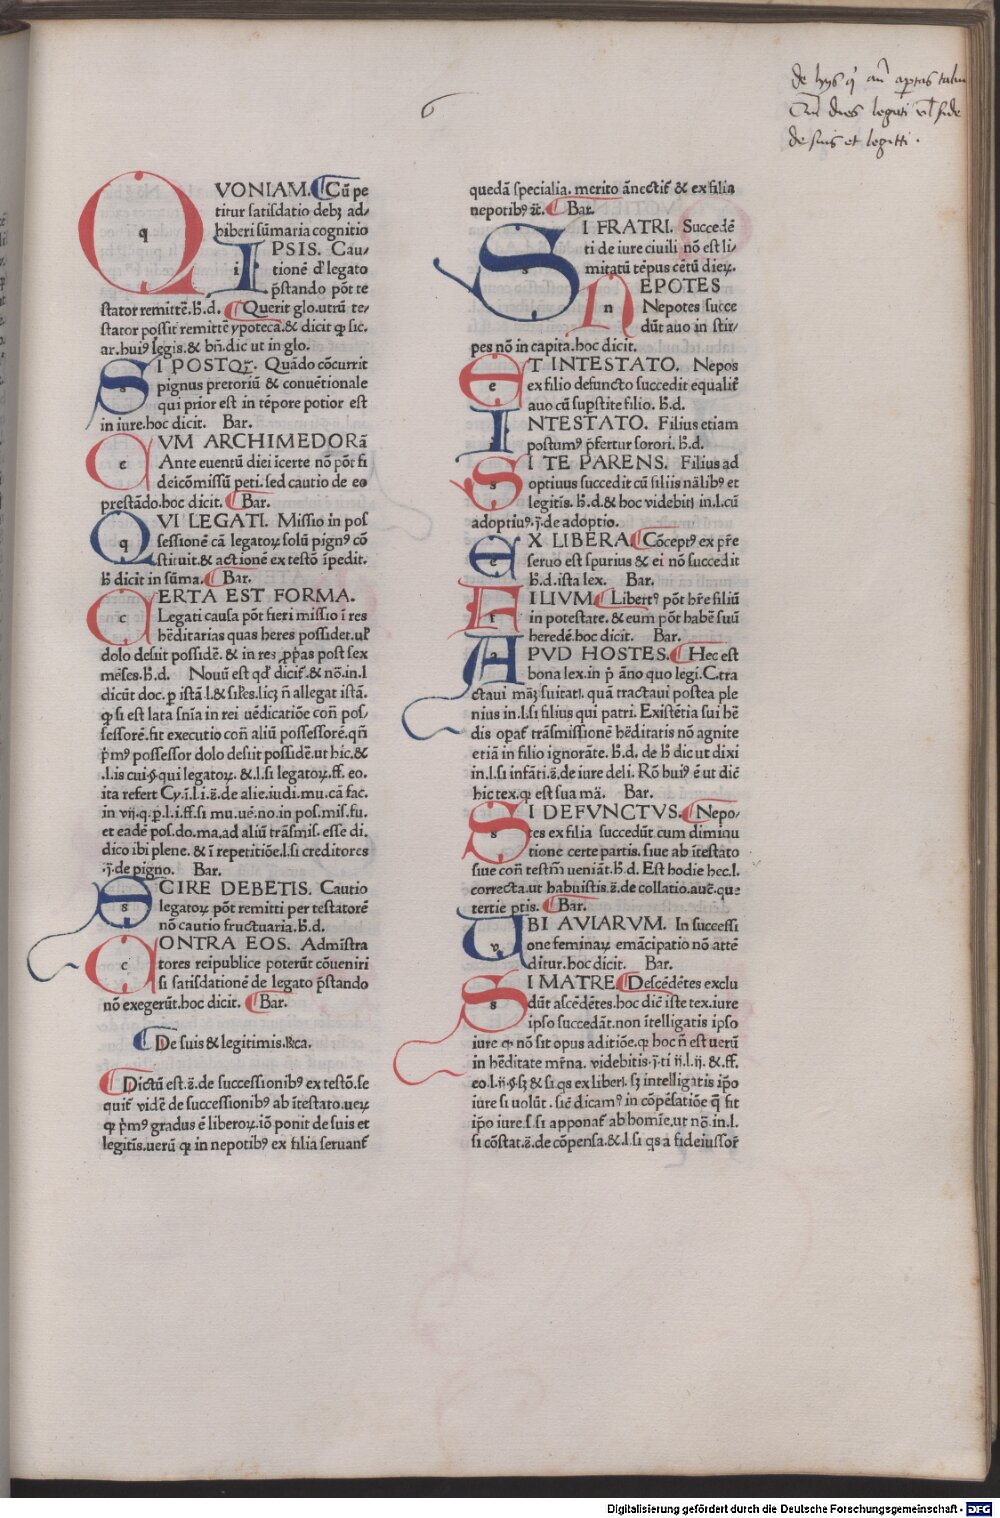 6
de hys q
de suis et legitti.
QVONIAM. Cũ pe
titur satisdatio debꝫ ad/
hiberi sũmaria cognitio
IPSIS. Cau/
tionẽ d' legato
p̃stando põt te
stator remittẽ.h̃.d. Querit glo.utrũ te/
stator possit remittẽ ypoteca.& dicit ꝙ sic.
ar.huiꝰ legis.& bñ.dic ut in glo.
SI POSTQꝜ. Quãdo cõcurrit
pignus pretoriũ & conuẽtionale
qui prior est in tẽpore potior est
in iure.hoc dicit. Bar.
CVM ARCHIMEDORã
Ante euentũ diei ĩcerte nõ põt fi
deicõmissũ peti.sed cautio de eo
prestãdo.hoc dicit. Bar.
QVI LEGATI. Missio in pos
sessionẽ cã legatoꝝ solũ pignꝰ cõ
stituit.& actionẽ ex testõ ĩpedit.
h̃ dicit in sũma. Bar.
CERTA EST FORMA.
Legati causa põt fieri missio ĩ res
hẽditarias quas heres possidet.ul'
dolo desiit possidẽ.& in res ꝓp̃as post sex
mẽses.h̃.d. Nouũ est qd' dicit̃.& nõ.in.l
dicũt doc.ꝑ istã l.& siles.licꝫ ñ allegat istã.
ꝙ si est lata sñia in rei uẽdicatiõe coñ pos/
sessorẽ.fit executio coñ aliũ possessorẽ.qñ
p̃mꝰ possessor dolo desiit possidẽ.ut hic.&
.l.is cui.§.qui legatoꝝ.&.l.si legatoꝝ.ff.eo.
ita refert Cy.ĩ.l.i.s̃.de alie.iudi.mu.cã fac.
in vij.q.p̃.l.i.ff.si mu.uẽ.no.in pos.mis.fu.
et eadẽ pos.do.ma.ad aliũ trãsmis.esse di.
dico ibi plene.& ĩ repetitiõe.l.si creditores
.j̃.de pigno. Bar.
SCIRE DEBETIS. Cautio
legatoꝝ põt remitti per testatorẽ
nõ cautio fructuaria.h̃.d.
CONTRA EOS. Admĩstra
tores reipublice poterũt cõueniri
si satisdationẽ de legato p̃stando
nõ exegerũt.hoc dicit. Bar.
De suis & legitimis.Rrca.
Dictũ est.s̃.de successionibꝰ ex testõ.se
quit̃ vidẽ de successionibꝰ ab ĩtestato.ueꝝ
ꝙ p̃mꝰ gradus ẽ liberoꝝ.iõ ponit de suis et
legitĩs.uerũ ꝙ in nepotibꝰ ex filia seruant̃
quedã specialia.merito ãnectit̃ & ex filia
nepotibꝰ ⁊c̃. Bar.
SI FRATRI. Succedẽ
ti de iure ciuili nõ est li/
mitatũ tẽpus cẽtũ dieꝝ.
NEPOTES
Nepotes succe
dũt auo in stir/
pes nõ in capita.hoc dicit.
ET INTESTATO. Nepos
ex filio defuncto succedit equalit̃
auo cũ sup̃stite filio. h̃.d.
INTESTATO. Filius etiam
postumꝰ p̃fertur sorori. h̃.d.
SI TE PARENS. Filius ad
optiuus succedit cũ filiis nãlibꝰ et
legitĩs.h̃.d.& hoc videbiti in.l.cũ
adoptiuꝰ.j̃.de adoptio.
EX LIBERA. Cõceptꝰ ex p̃re
seruo est spurius & ei nõ succedit
h̃.d.ista lex. Bar.
FILIVM. Libertꝰ põt hr̃e filiũ
in potestate.& eum põt habẽ suũ
heredẽ.hoc dicit. Bar.
APVD HOSTES. Hec est
bona lex.in p̃ ãno quo legi.C.tra
ctaui mãꝫ suitati.quã tractaui postea ple
nius in.l.si filius qui patri. Existẽtia sui hẽ
dis opat̃ trãsmissionẽ hẽditatis nõ agnite
etiã in filio ignorãte. h̃.d. de h̃ dic ut dixi
in.l.si infãti.s̃.de iure deli. Rõ huiꝰ ẽ ut diẽ
hic tex.ꝙ est sua mã. Bar.
SI DEFVNCTVS. Nepo/
tes ex filia succedũt.cum diminu
tione certe partis.siue ab ĩtestato
siue coñ testm̃ ueniãt.h̃.d. Est hodie hec.l.
correcta.ut habuistis.s̃.de collatio.auc̃.que
tertie ptis. Bar.
VBI AVIARVM. In successi
one feminaꝝ emãcipatio nõ attẽ
ditur.hoc dicit. Bar.
SI MATRE. Descẽdẽtes exclu
dũt ascẽdẽtes.hoc diẽ iste tex.iure
ipso succedãt.non ĩtelligatis ipso
iure ꝙ nõ sit opus aditiõe.ꝙ hoc ñ est uerũ
in hẽditate mr̃na. videbitis.j̃.ti ij.l.ij. &.ff.
eo.l.ij.§.sꝫ & si qs ex liberi.sꝫ intelligatis ip̃o
iure si uolũt.sic̃ dicamꝰ in cõpẽsatiõe q̃ fit
ip̃o iure.s.si apponat̃ ab homĩe,ut nõ.in.l.
si cõstat.s̃.de cõpensa.&.l.si qs a fideiussor̃
Digitalisierung gefördert durch die Deutsche Forschungsgemeinschaft - DFG